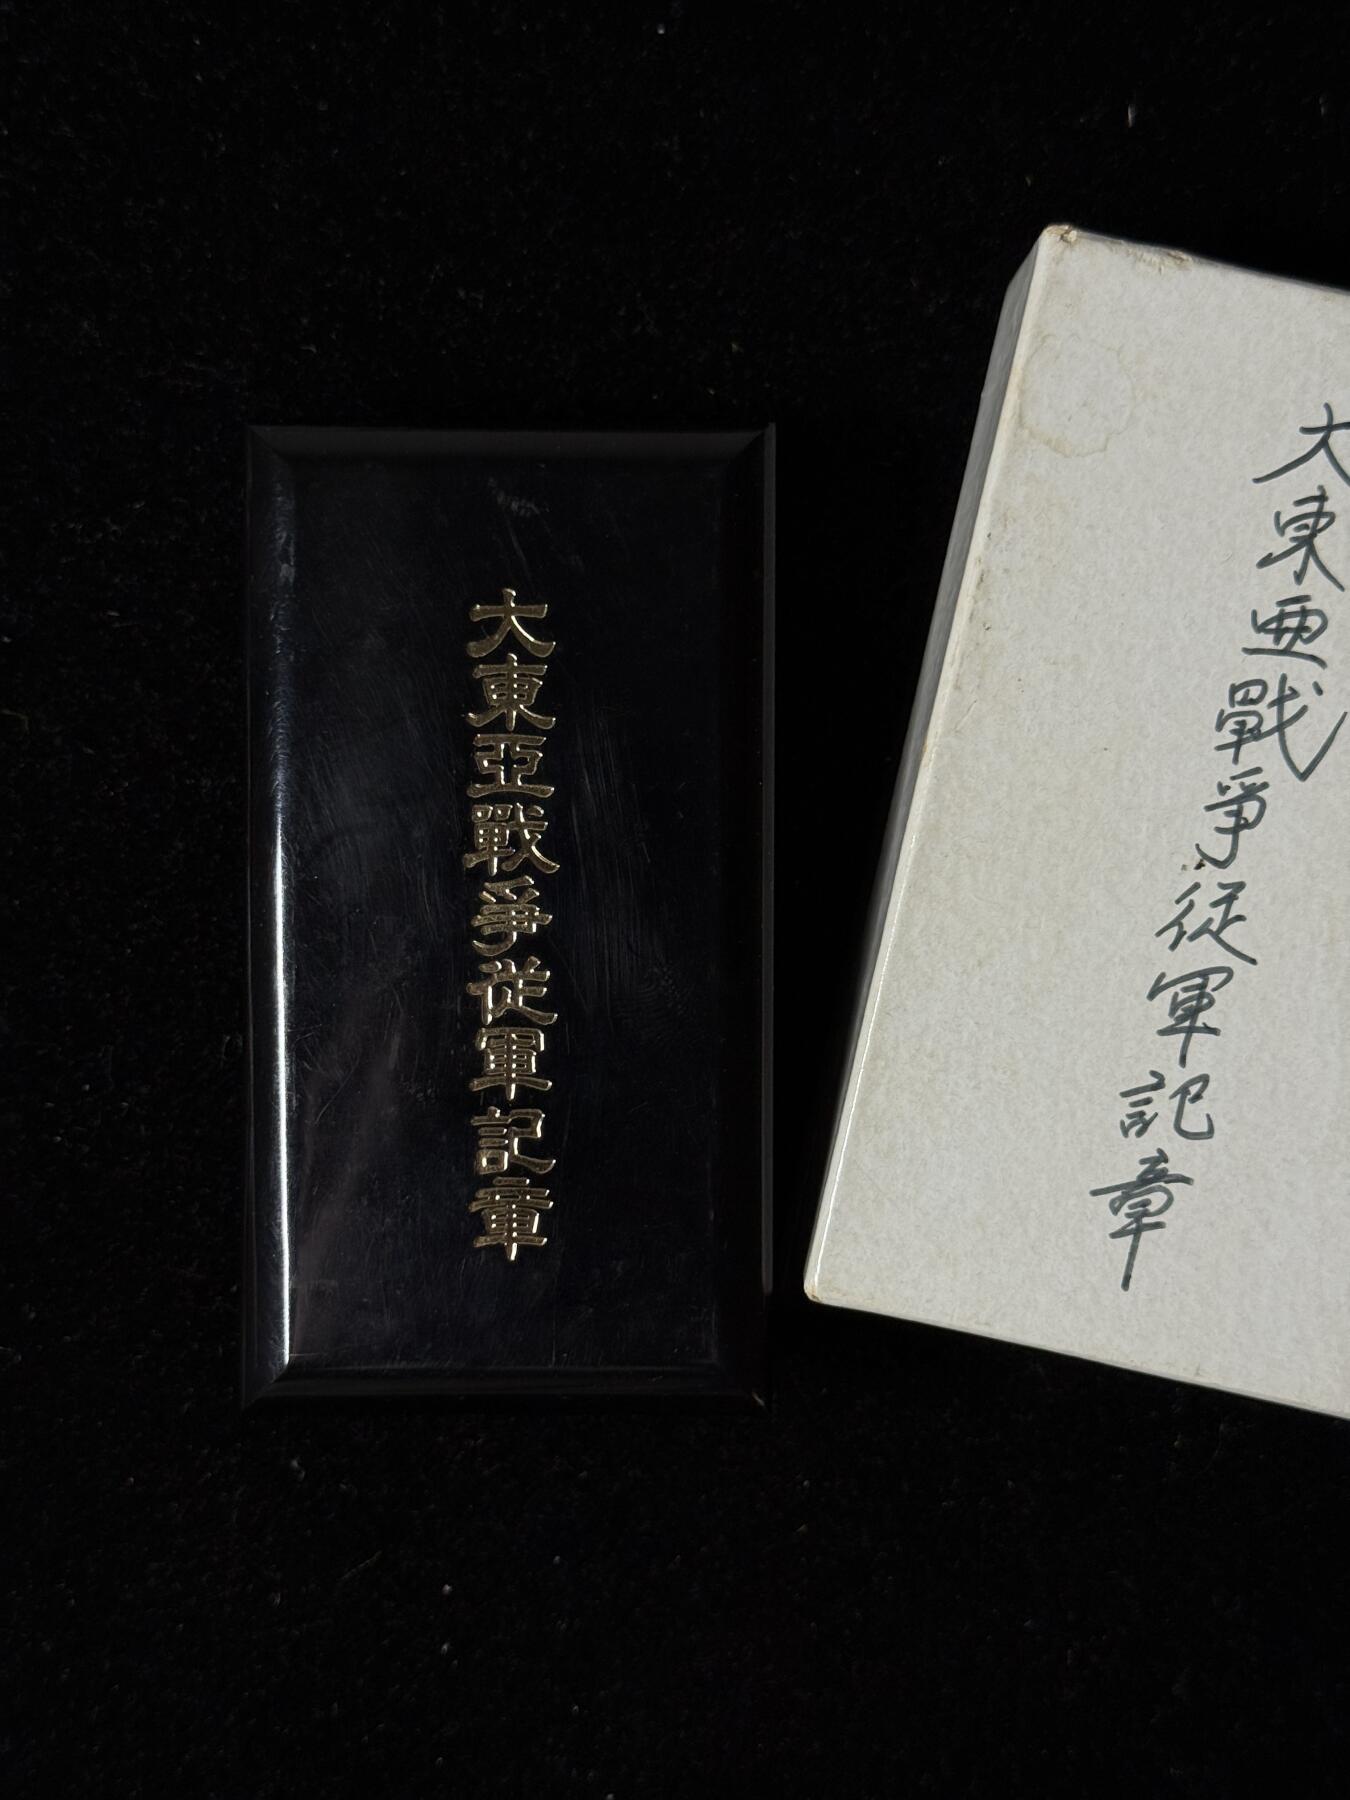 大東亞戰爭從軍記章
大東亜戰爭従軍記章